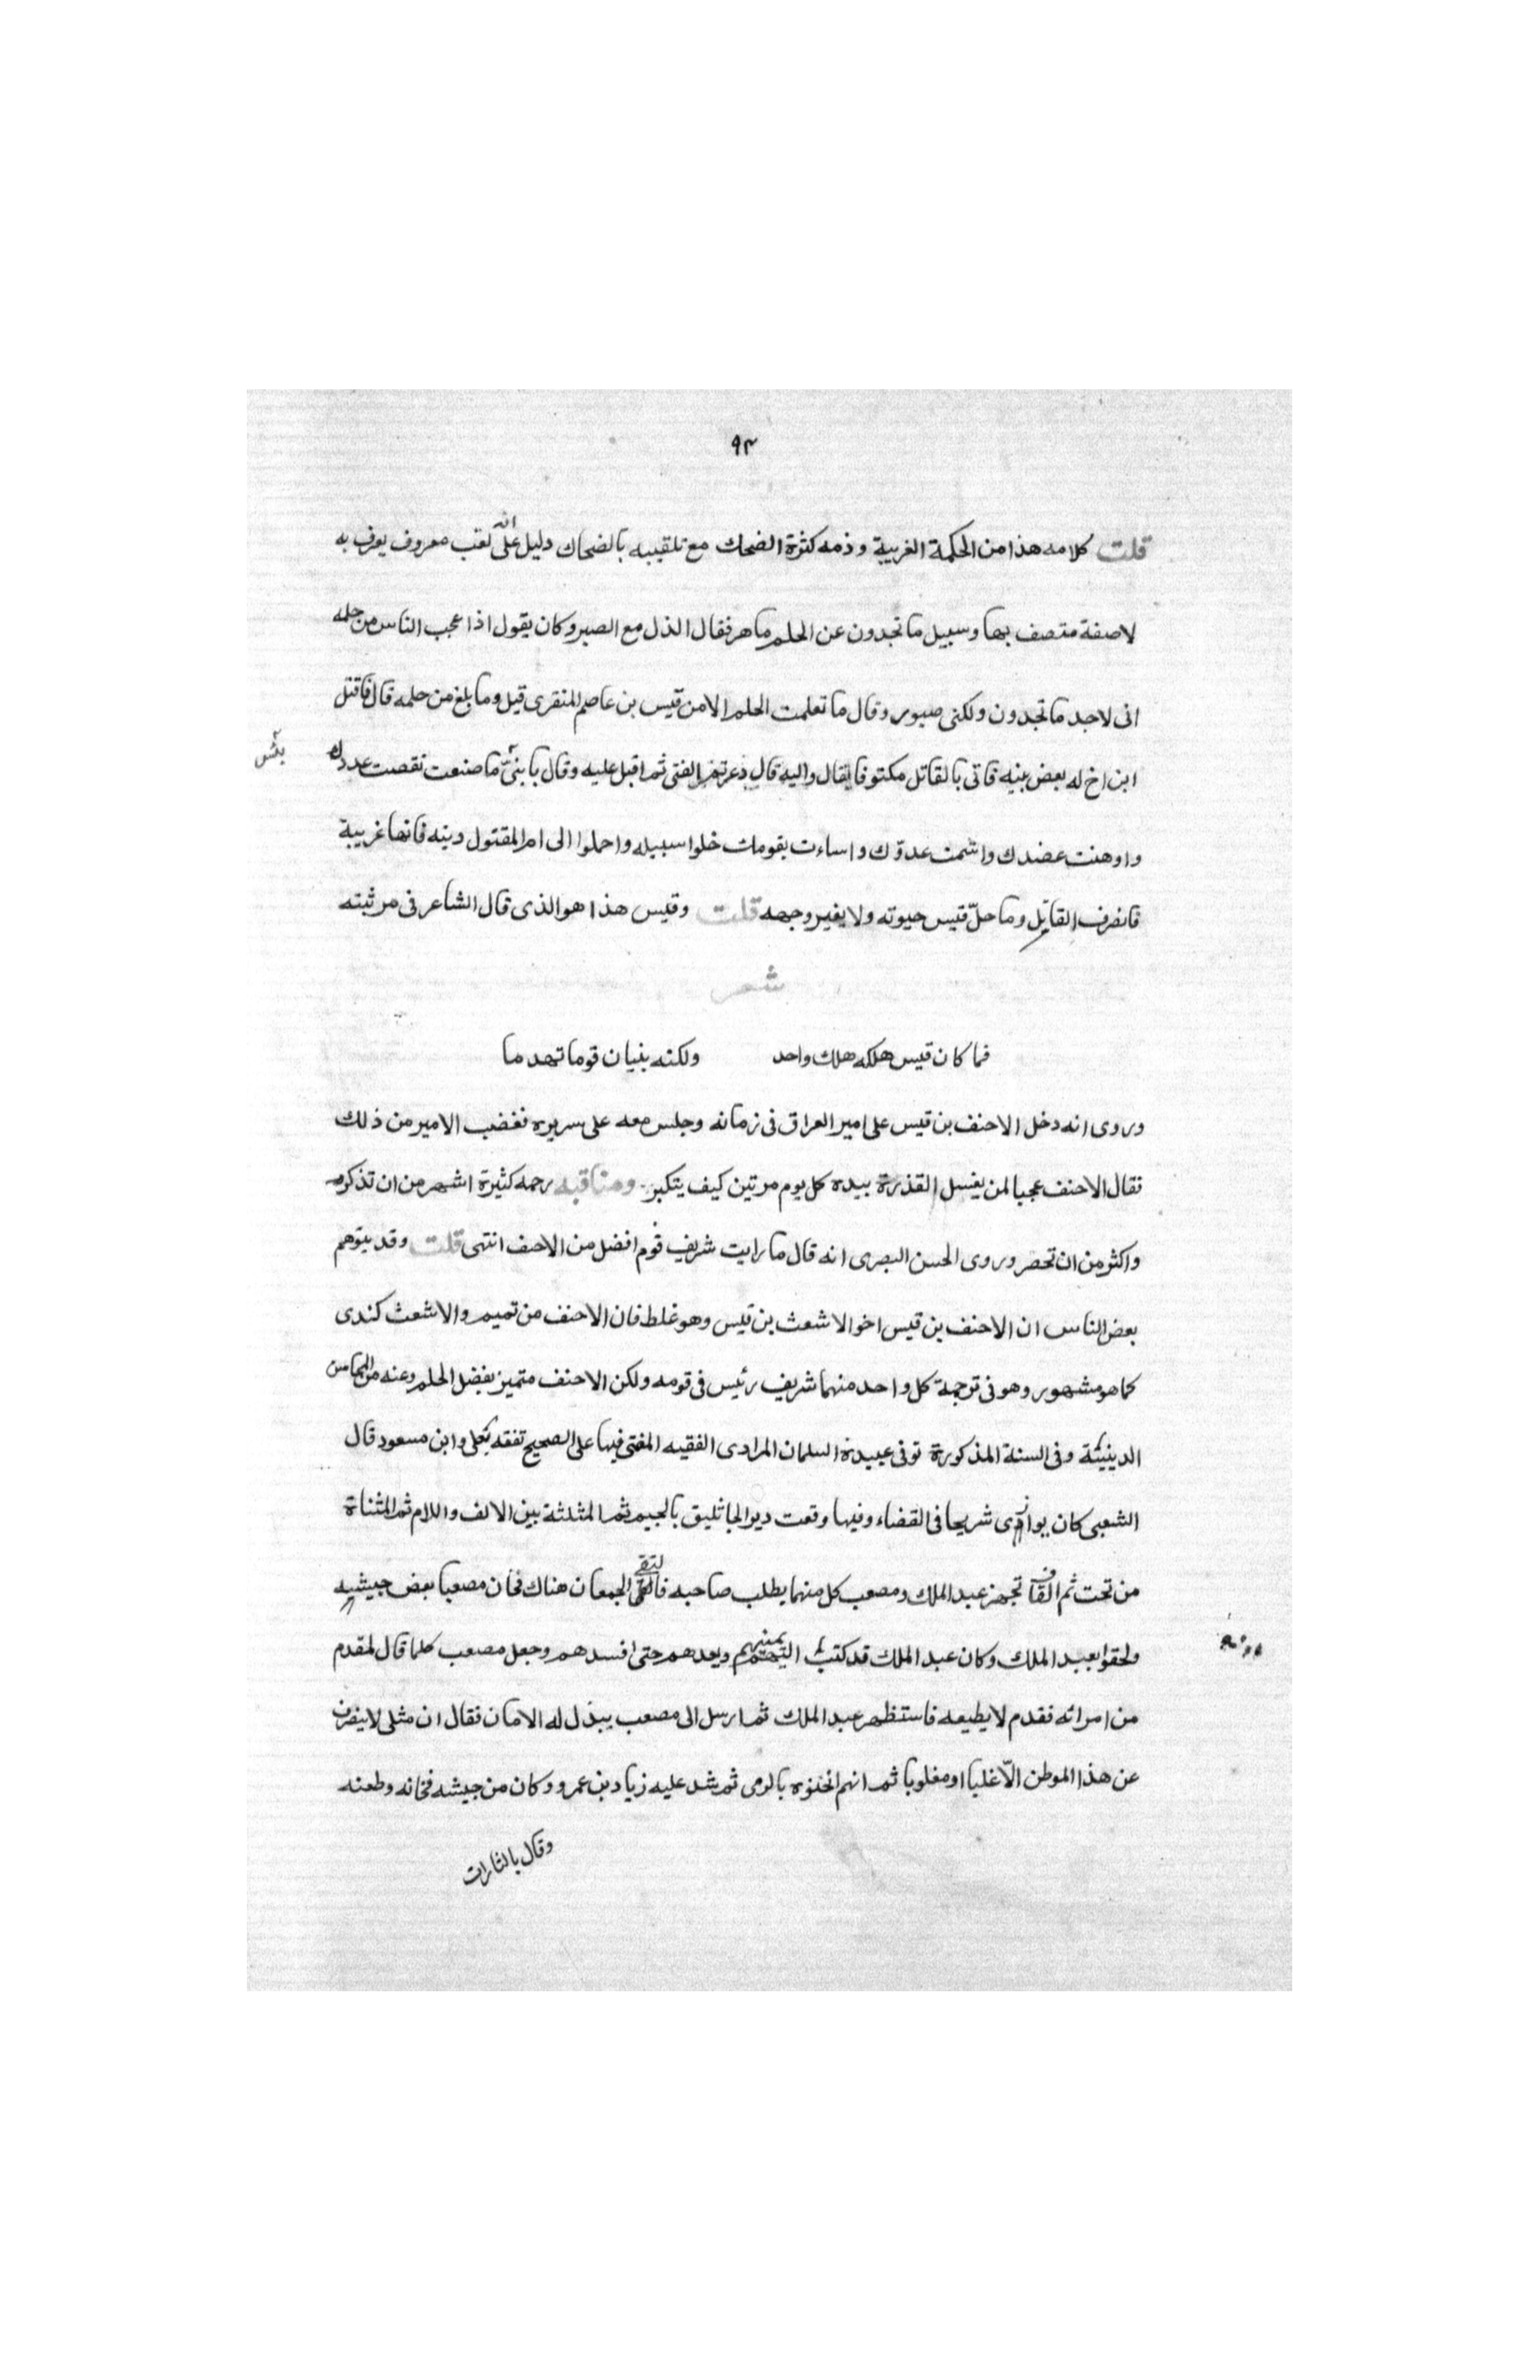 ٩٣
قلت كلامه هذا من الحكمة الغريبة وذمه كثرة الضحك مع تلقيبه بالضحاك دليل على انه لقب معروف يعرف به
لا صفة متصف بها وسبيل ما تجدون عن الحلم ما هر فقال الذل مع الصبر وكان يقول اذا عجب الناس من حلمه
انى لاجد ما تجدون ولكنى صبور وقال ما تعلمت الحلم الا من قيس بن عاصم المنقرى قيل وما بلغ من حلمه قال قتل
ابن اخ له بعض بنيه فاتى بالقاتل مكتوفا يقال واليه قال ذعرتم الفتى ثم اقبل عليه وقال يا بنىّ ما صنعت نقصت عددك
بئس
واوهنت عضدك واشمت عدوّك واساءت بقومك خلوا سبيله واحملوا الى ام المقتول ديته فانها غريبة
فانصرف القاتل وما حلّ قيس حبوته ولا يغير وجهه قلت وقيس هذا هو الذى قال الشاعر فى مرثيته
شعر
فما كان قيس هلكه هلك واحد ولكنه بنيان قوما تهدما
وروى انه دخل الاحنف بن قيس على امير العراق فى زمانه وجلس معه على سريره فغضب الامير من ذلك
فقال الاحنف عجبا لمن يغسل القذرة بيده كل يوم مرتين كيف يتكبر ومناقبه رحمه كثيرة اشهر من ان تذكر
واكثر من ان تحصر وروى الحسن البصرى انه قال ما رايت شريف قوم افضل من الاحنف انتهى قلت وقد يتوهم
بعض الناس ان الاحنف بن قيس اخو الاشعث بن قيس وهو غلط فان الاحنف من تميم والاشعث كندى
كما هو مشهور وهو فى ترجمة كل واحد منهما شريف رئيس فى قومه ولكن الاحنف متميز بفضل الحلم وعنه من المحاسن
الدينية وفى السنة المذكورة توفى عبيدة السلمان المرادى الفقيه المفتى فيها على الصحيح تفقه بعلى وابن مسعود قال
الشعبى كان يوازى شريحا فى القضاء وفيها وقعت دير الجاثليق بالجيم ثم المثلثة بين الالف واللام ثم المثناة
من تحت ثم القاف تجهز عبد الملك ومصعب كل منهما يطلب صاحبه فالتقى الجمعان هناك فخان مصعبا بعض جيشه
ولحقوا بعبد الملك وكان عبد الملك قد كتب اليهم يمنيهم ويعدهم حتى افسدهم وجعل مصعب كلما قال لمقدم
من امرائه تقدم لا يطيعه فاستظهر عبد الملك ثم ارسل الى مصعب يبذل له الامان فقال ان مثلى لا ينصرف
عن هذا الموطن الّا غلبا او مغلوبا ثم انهم اثخنوه بالرمى ثم شد عليه زياد بن عمرو وكان من جيشه فخانه وطعنه
وقال يا لثارات